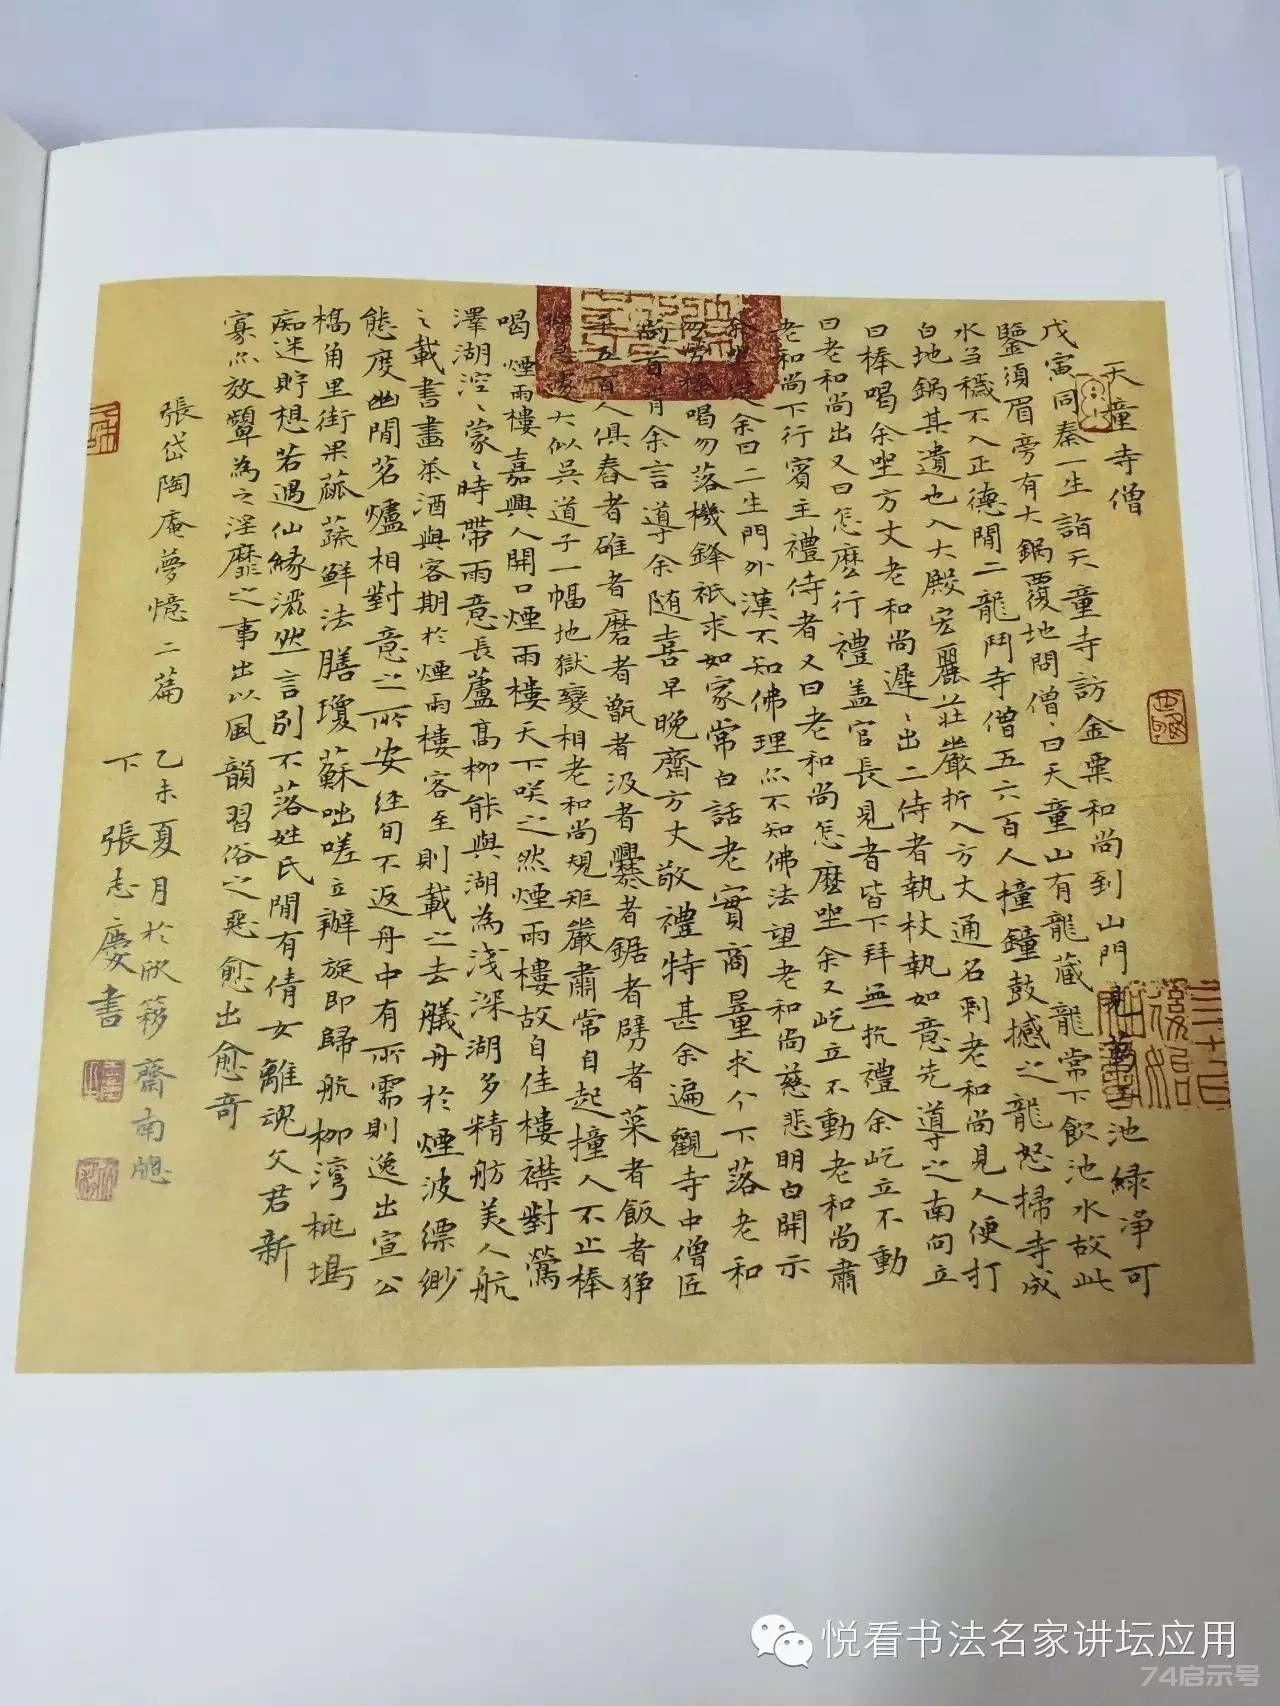 天童寺僧
戊寅同秦一生詣天童寺訪金粟和尚到山門見萬工池綠淨可
鑒須眉旁有大鍋覆地問僧、曰天童山有龍藏龍常下飲池水故此
水芻穢不入正德間二龍鬥寺僧五六百人撞鐘鼓撼之龍怒掃寺成
白地鍋其遺也入大殿宏麗莊嚴折入方丈通名刺老和尚見人便打
曰棒喝余坐方丈老和尚遲、出二侍者執杖執如意先導之南向立
曰老和尚出又曰怎麼行禮蓋官長見者皆下拜無抗禮余屹立不動
老和尚下行賓主禮侍者又曰老和尚怎麼坐余又屹立不動老和尚肅
余坐定余曰二生門外漢不知佛理亦不知佛法望老和尚慈悲明白開示
勿勞棒喝勿落機鋒祇求如家常白話老實商量求个下落老和
尚首肯余言導余随喜早晚齋方丈敬禮特甚余遍觀寺中僧匠
千五百人俱舂者碓者磨者甑者汲者爨者鋸者劈者菜者飯者猙
獰急遽大似吳道子一幅地獄變相老和尚規矩嚴肅常自起撞人不止棒
喝 煙雨樓嘉興人開口煙雨樓天下咲之然煙雨樓故自佳樓襟對鶯
澤湖涳、蒙、時帶雨意長蘆高柳能與湖為淺深湖多精舫美人航
之載書畫茶酒與客期於煙雨樓客至則載之去艤舟於煙波縹緲
態度幽閒茗爐相對意之所安經旬不返舟中有所需則逸出宣公
橋角里街果蓏蔬鮮法膳瓊蘇咄嗟立辦旋即歸航柳灣桃塢
痴迷貯想若遇仙緣灑然言別不落姓氏間有倩女離魂文君新
寡亦效顰為之淫靡之事出以風韻習俗之惡愈出愈奇
張岱陶庵夢憶二篇
乙未夏月於欣簃齋南牕
下 張志慶書
悦看书法名家讲坛应用
74启示号